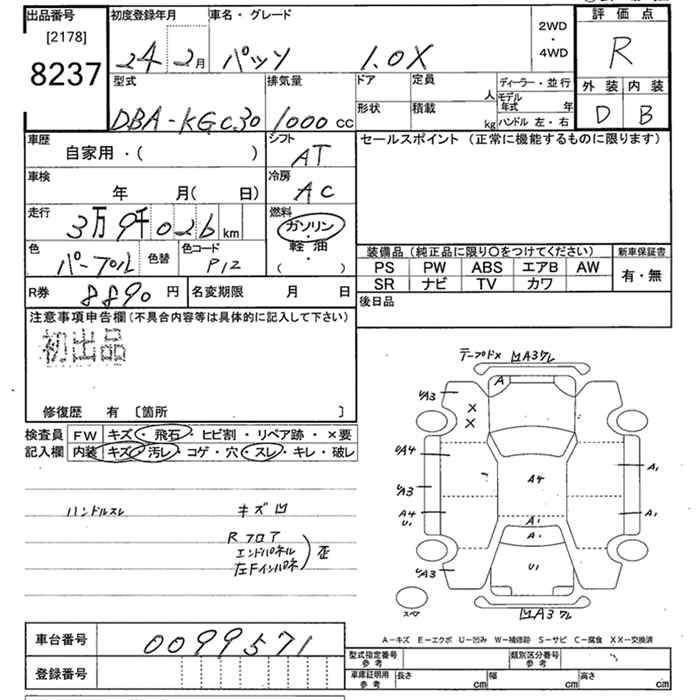 出品番号
[2178]
8237
初度登録年月
24 2月
車名・グレード
パッソ 1.0X
2WD
・
4WD
評価点
R
外装 内装
D B
型式
DBA-KGC30
排気量
1000 cc
ドア
定員
人
形状
積載
kg
ディーラー・並行
モデル年式 年
ハンドル 左・右
車歴
自家用・( )
シフト
AT
セールスポイント (正常に機能するものに限ります)
車検
年 月( 日)
冷房
AC
走行
3万9千026 km
燃料
ガソリン
・
軽油
( )
色
パープル
色替
色コード
P12
装備品 (純正品に限り○をつけてください)
PS PW ABS エアB AW
SR ナビ TV カワ
新車保証書
有・無
R券 8890 円
名変期限 月 日
後日品
注意事項申告欄 (不具合内容等は具体的に記入して下さい)
初出品
修復歴 有 〔箇所 〕
検査員
記入欄
FW キズ・飛石・ヒビ割・リペア跡・×要
内装 キズ・汚レ・コゲ・穴・スレ・キレ・破レ
ハンドルスレ キズ凹
Rフロア
エンドパネル
左Fインパネ
歪
テープドメ 凹A3ワレ
A
UA3
×
×
UA4
UA3
A4
U1
UA3
A4
A1
A1
A1
A1
U1
スペア
凹A3ワレ
A-キズ E-エクボ U-凹み W-補修跡 S-サビ C-腐食 XX-交換済
車台番号 0099571
登録番号
型式指定番号
参考
類別区分番号
参考
車庫証明用
参考
長さ cm
幅 cm
高さ cm